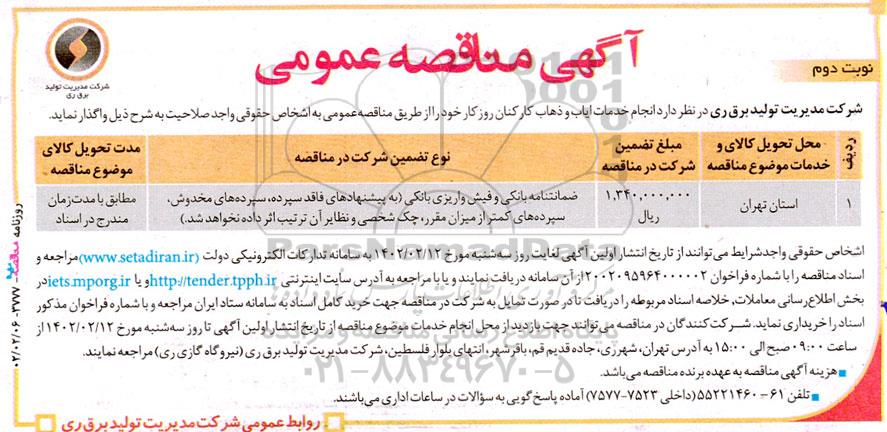 آگهی مناقصه عمومی
نوبت دوم
شرکت مدیریت تولید
برق ری
شرکت مدیریت تولید برق ری در نظر دارد انجام خدمات ایاب و ذهاب کارکنان روز کار خود را از طریق مناقصه عمومی به اشخاص حقوقی واجد صلاحیت به شرح ذیل واگذار نماید.
ردیف
محل تحویل کالای و خدمات موضوع مناقصه
مبلغ تضمین شرکت در مناقصه
نوع تضمین شرکت در مناقصه
مدت تحویل کالای موضوع مناقصه
۱
استان تهران
۱,۳۴۰,۰۰۰,۰۰۰ ریال
ضمانتنامه بانکی و فیش واریزی بانکی (به پیشنهادهای فاقد سپرده، سپرده‌های مخدوش،
سپرده‌های کمتر از میزان مقرر، چک شخصی و نظایر آن ترتیب اثر داده نخواهد شد.)
مطابق با مدت زمان مندرج در اسناد
اشخاص حقوقی واجد شرایط می‌توانند از تاریخ انتشار اولین آگهی لغایت روز سه‌شنبه مورخ ۱۴۰۲/۰۲/۱۲ به سامانه تدارکات الکترونیکی دولت (www.setadiran.ir) مراجعه و
اسناد مناقصه را با شماره فراخوان ۲۰۰۲۰۹۵۹۶۴۰۰۰۰۰۲ از آن سامانه دریافت نمایند و یا با مراجعه به آدرس سایت اینترنتی http://tender.tpph.ir و یا iets.mporg.ir در
بخش اطلاع‌رسانی معاملات، خلاصه اسناد مربوطه را دریافت تا در صورت تمایل به شرکت در مناقصه جهت خرید کامل اسناد به سامانه ستاد ایران مراجعه و با شماره فراخوان مذکور
اسناد را خریداری نماید. شرکت کنندگان در مناقصه می‌توانند جهت بازدید از محل انجام خدمات موضوع مناقصه از تاریخ انتشار اولین آگهی تا روز سه‌شنبه مورخ ۱۴۰۲/۰۲/۱۲ از
ساعت ۰۹:۰۰ صبح الی ۱۵:۰۰ به آدرس تهران، شهرری، جاده قدیم قم، باقرشهر، انتهای بلوار فلسطین، شرکت مدیریت تولید برق ری (نیروگاه گازی ری) مراجعه نمایند.
■ هزینه آگهی مناقصه به عهده برنده مناقصه می‌باشد.
■ تلفن ۶۱-۵۵۲۲۱۴۶۰ (داخلی ۷۵۲۳-۷۵۷۷) آماده پاسخ گویی به سؤالات در ساعات اداری می‌باشند.
روابط عمومی شرکت مدیریت تولید برق ری
روزنامه مناقصه ۳۷۷۷ - ۰۲/۰۲/۰۶
ParsNamadData
۰۲۱-۸۸۳۴۹۶۷۰-۵